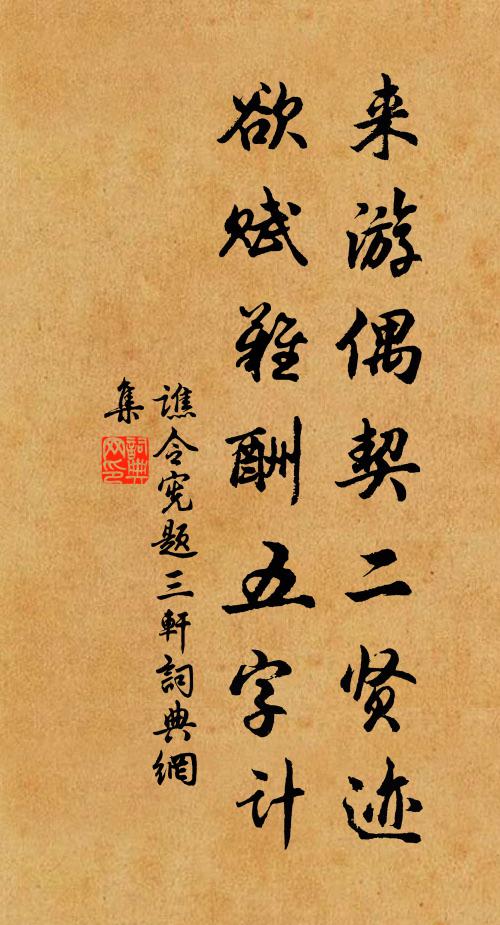 来游偶契二贤迹
欲赋难酬五字计
谯令宪题三軒詞典網
集
詞典網印